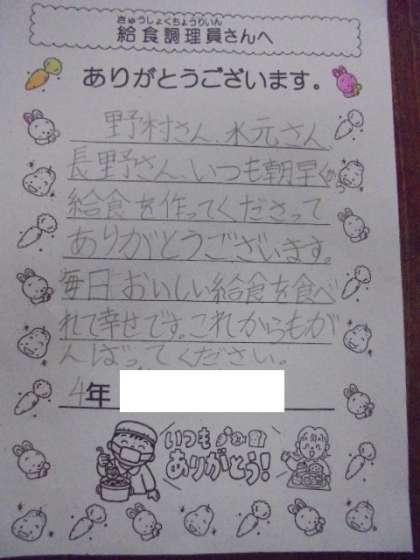 きゅうしょくちょうりいん
給食調理員さんへ
ありがとうございます。
野村さん、水元さん、
長野さん、いつも朝早くから
給食を作ってくださって
ありがとうございます。
毎日おいしい給食を食べ
れて幸せです。これからもが
んばってください。
4年
いつも
ありがとう!